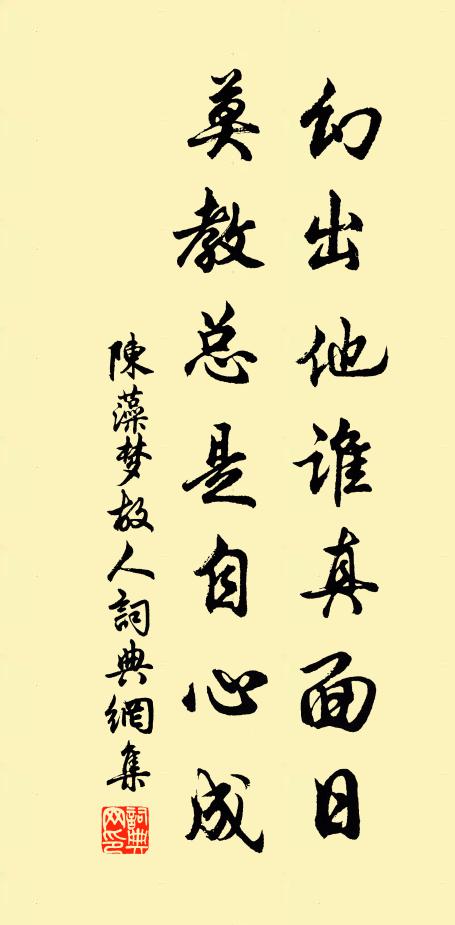 幻出他谁真面日
莫教总是自心成
陳藻梦故人詞典網集
詞典网印